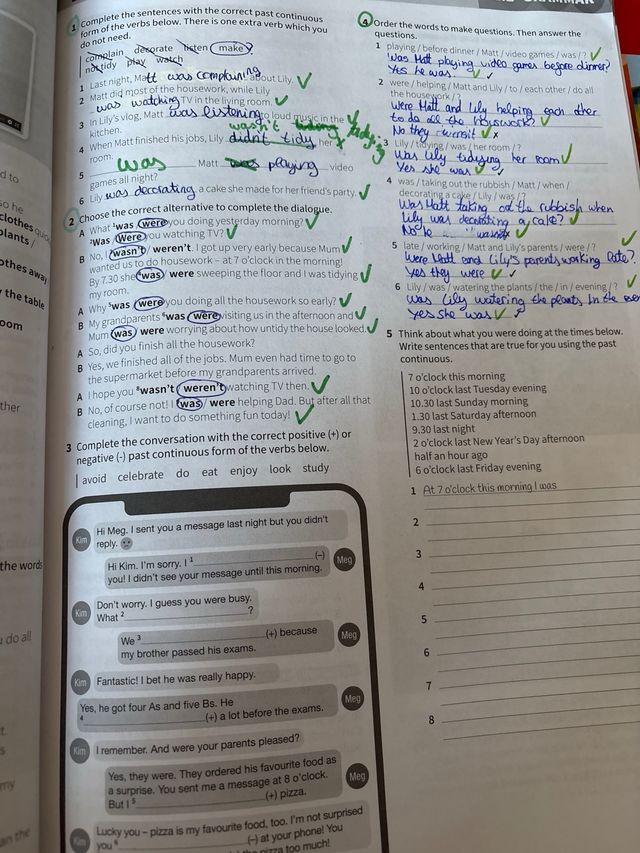 GRAMMAR
1 Complete the sentences with the correct past continuous
form of the verbs below. There is one extra verb which you
do not need.
complain decorate listen make
not tidy play watch
1 Last night, Matt was complaining about Lily.
2 Matt did most of the housework, while Lily
was watching TV in the living room.
3 In Lily's vlog, Matt was listening to loud music in the
kitchen.
wasn't tidying
4 When Matt finished his jobs, Lily didn't tidy her
room.
5 was Matt playing video
games all night?
6 Lily was decorating a cake she made for her friend's party.
2 Choose the correct alternative to complete the dialogue.
A What ¹was / were you doing yesterday morning?
²Was / Were you watching TV?
B No, I ³wasn't / weren't. I got up very early because Mum
wanted us to do housework – at 7 o'clock in the morning!
By 7.30 she ⁴was / were sweeping the floor and I was tidying
my room.
A Why ⁵was / were you doing all the housework so early?
B My grandparents ⁶was / were visiting us in the afternoon and
Mum ⁷was / were worrying about how untidy the house looked.
A So, did you finish all the housework?
B Yes, we finished all of the jobs. Mum even had time to go to
the supermarket before my grandparents arrived.
A I hope you ⁸wasn't / weren't watching TV then.
B No, of course not! I ⁹was / were helping Dad. But after all that
cleaning, I want to do something fun today!
3 Complete the conversation with the correct positive (+) or
negative (-) past continuous form of the verbs below.
avoid celebrate do eat enjoy look study
Kim
Hi Meg. I sent you a message last night but you didn't
reply.
Hi Kim. I'm sorry. I ¹ (–)
you! I didn't see your message until this morning.
Meg
Kim
Don't worry. I guess you were busy.
What ² ?
We ³ (+) because
my brother passed his exams.
Meg
Kim
Fantastic! I bet he was really happy.
Yes, he got four As and five Bs. He
⁴ (+) a lot before the exams.
Meg
Kim
I remember. And were your parents pleased?
Yes, they were. They ordered his favourite food as
a surprise. You sent me a message at 8 o'clock.
But I ⁵ (+) pizza.
Meg
Kim
Lucky you – pizza is my favourite food, too. I'm not surprised
you ⁶ (–) at your phone! You
the pizza too much!
4 Order the words to make questions. Then answer the
questions.
1 playing / before dinner / Matt / video games / was / ?
Was Matt playing video games before dinner?
Yes he was.
2 were / helping / Matt and Lily / to / each other / do all
the housework / ?
Were Matt and Lily helping each other
to do all the housework?
No they weren't
3 Lily / tidying / was / her room / ?
Was Lily tidysing her room
Yes she was
4 was / taking out the rubbish / Matt / when /
decorating a cake / Lily / was / ?
Was Matt taking out the rubbish when
Lily was decorating a cake?
No he wasn't
5 late / working / Matt and Lily's parents / were / ?
Were Matt and Lily's parents working late?
Yes they were
6 Lily / was / watering the plants / the / in / evening / ?
Was Lily watering the plants in the
Yes she was
5 Think about what you were doing at the times below.
Write sentences that are true for you using the past
continuous.
7 o'clock this morning
10 o'clock last Tuesday evening
10.30 last Sunday morning
1.30 last Saturday afternoon
9.30 last night
2 o'clock last New Year's Day afternoon
half an hour ago
6 o'clock last Friday evening
1 At 7 o'clock this morning I was
2
3
4
5
6
7
8
d to
so he
clothes
plants /
othes away
the table
room
ther
the words
do all
my